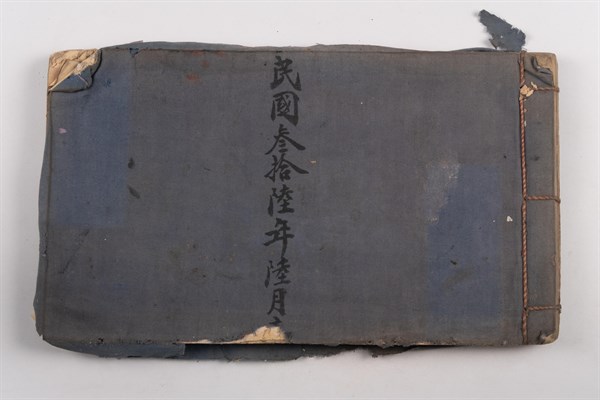 民國叁拾陸年陸月